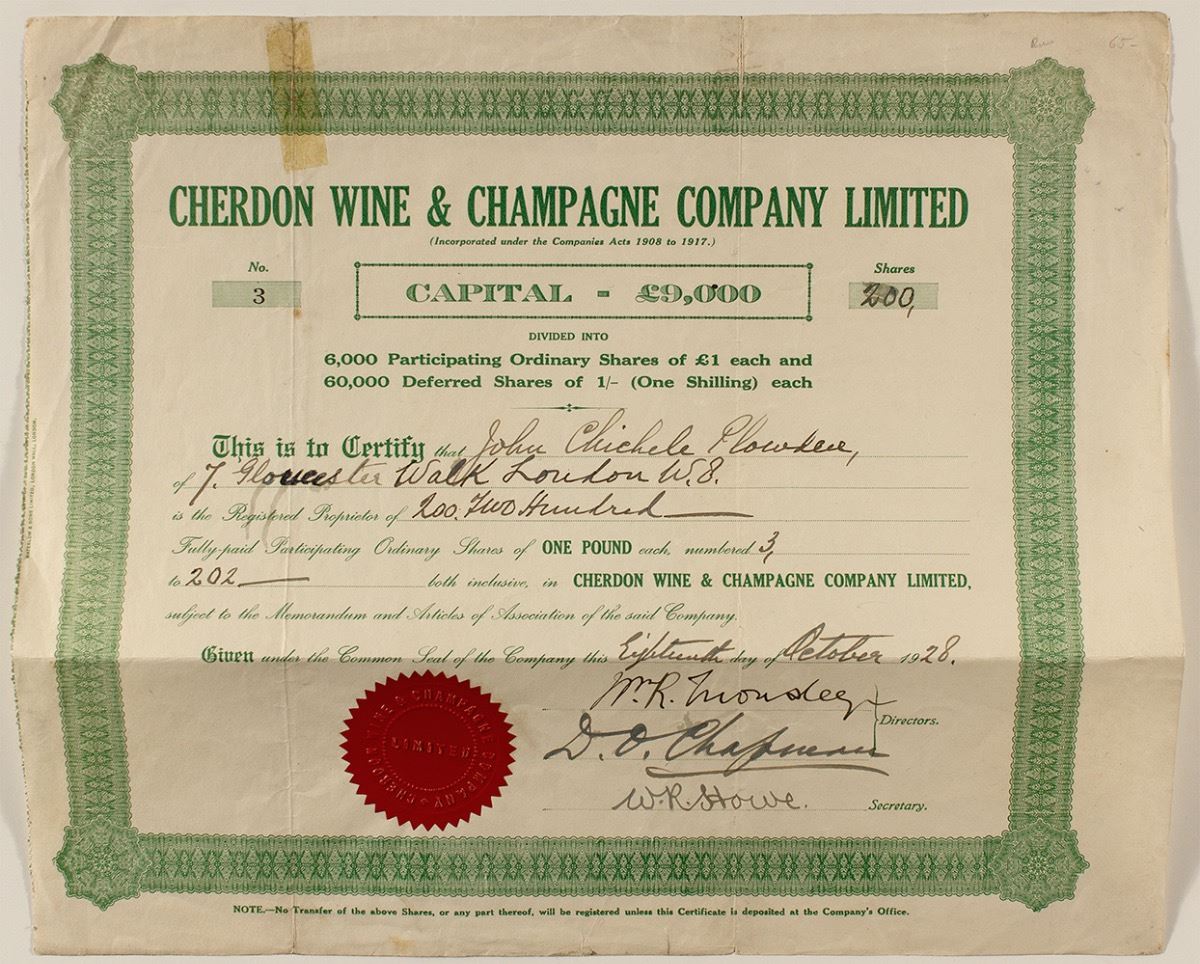 65-
CHERDON WINE & CHAMPAGNE COMPANY LIMITED
(Incorporated under the Companies Acts 1908 to 1917.)
No.
3
CAPITAL - £9,000
Shares
200,
DIVIDED INTO
6,000 Participating Ordinary Shares of £1 each and
60,000 Deferred Shares of 1/- (One Shilling) each
This is to Certify that John Chichele Plowden,
of 7. Gloucester Walk London W.8.
is the Registered Proprietor of 200. Two Hundred
Fully-paid Participating Ordinary Shares of ONE POUND each, numbered 3,
to 202 both inclusive, in CHERDON WINE & CHAMPAGNE COMPANY LIMITED,
subject to the Memorandum and Articles of Association of the said Company.
Given under the Common Seal of the Company this Eighteenth day of October 1928.
W.R.
Directors.
D. O. Chapman
W.R. Stowe.
Secretary.
CHERDON WINE & CHAMPAGNE COMPANY
LIMITED
NOTE.—No Transfer of the above Shares, or any part thereof, will be registered unless this Certificate is deposited at the Company's Office.